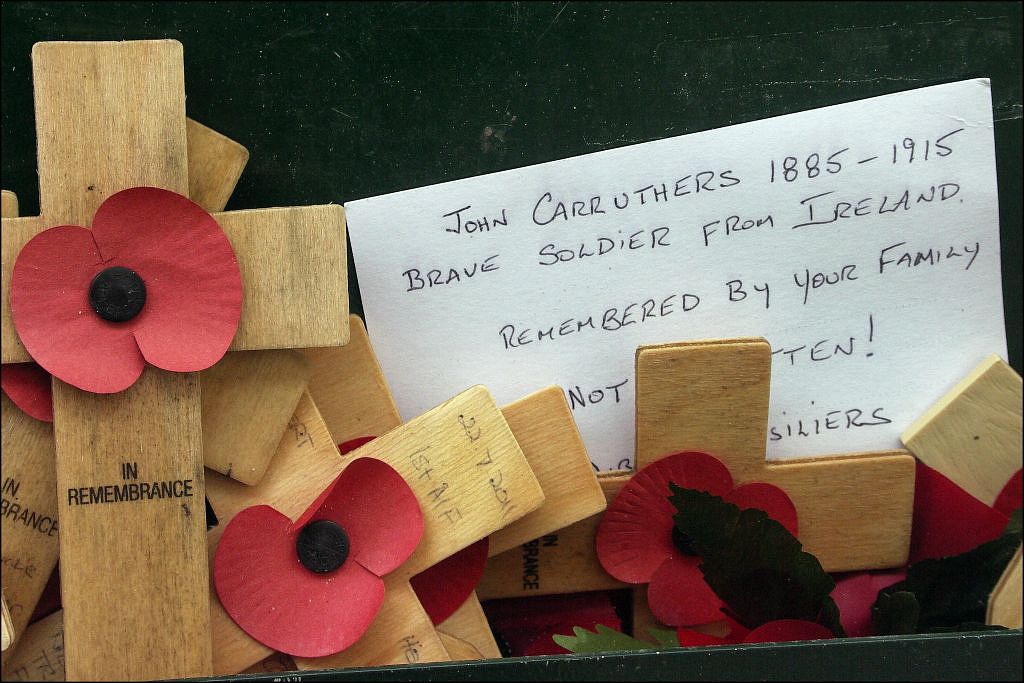 JOHN CARRUTHERS 1885-1915
BRAVE SOLDIER FROM IRELAND.
REMEMBERED BY YOUR FAMILY
NOT TTEN!
SILIERS
IN
REMEMBRANCE
22.7.2011
1st AIF
IN
BRANCE
IN
BRANCE